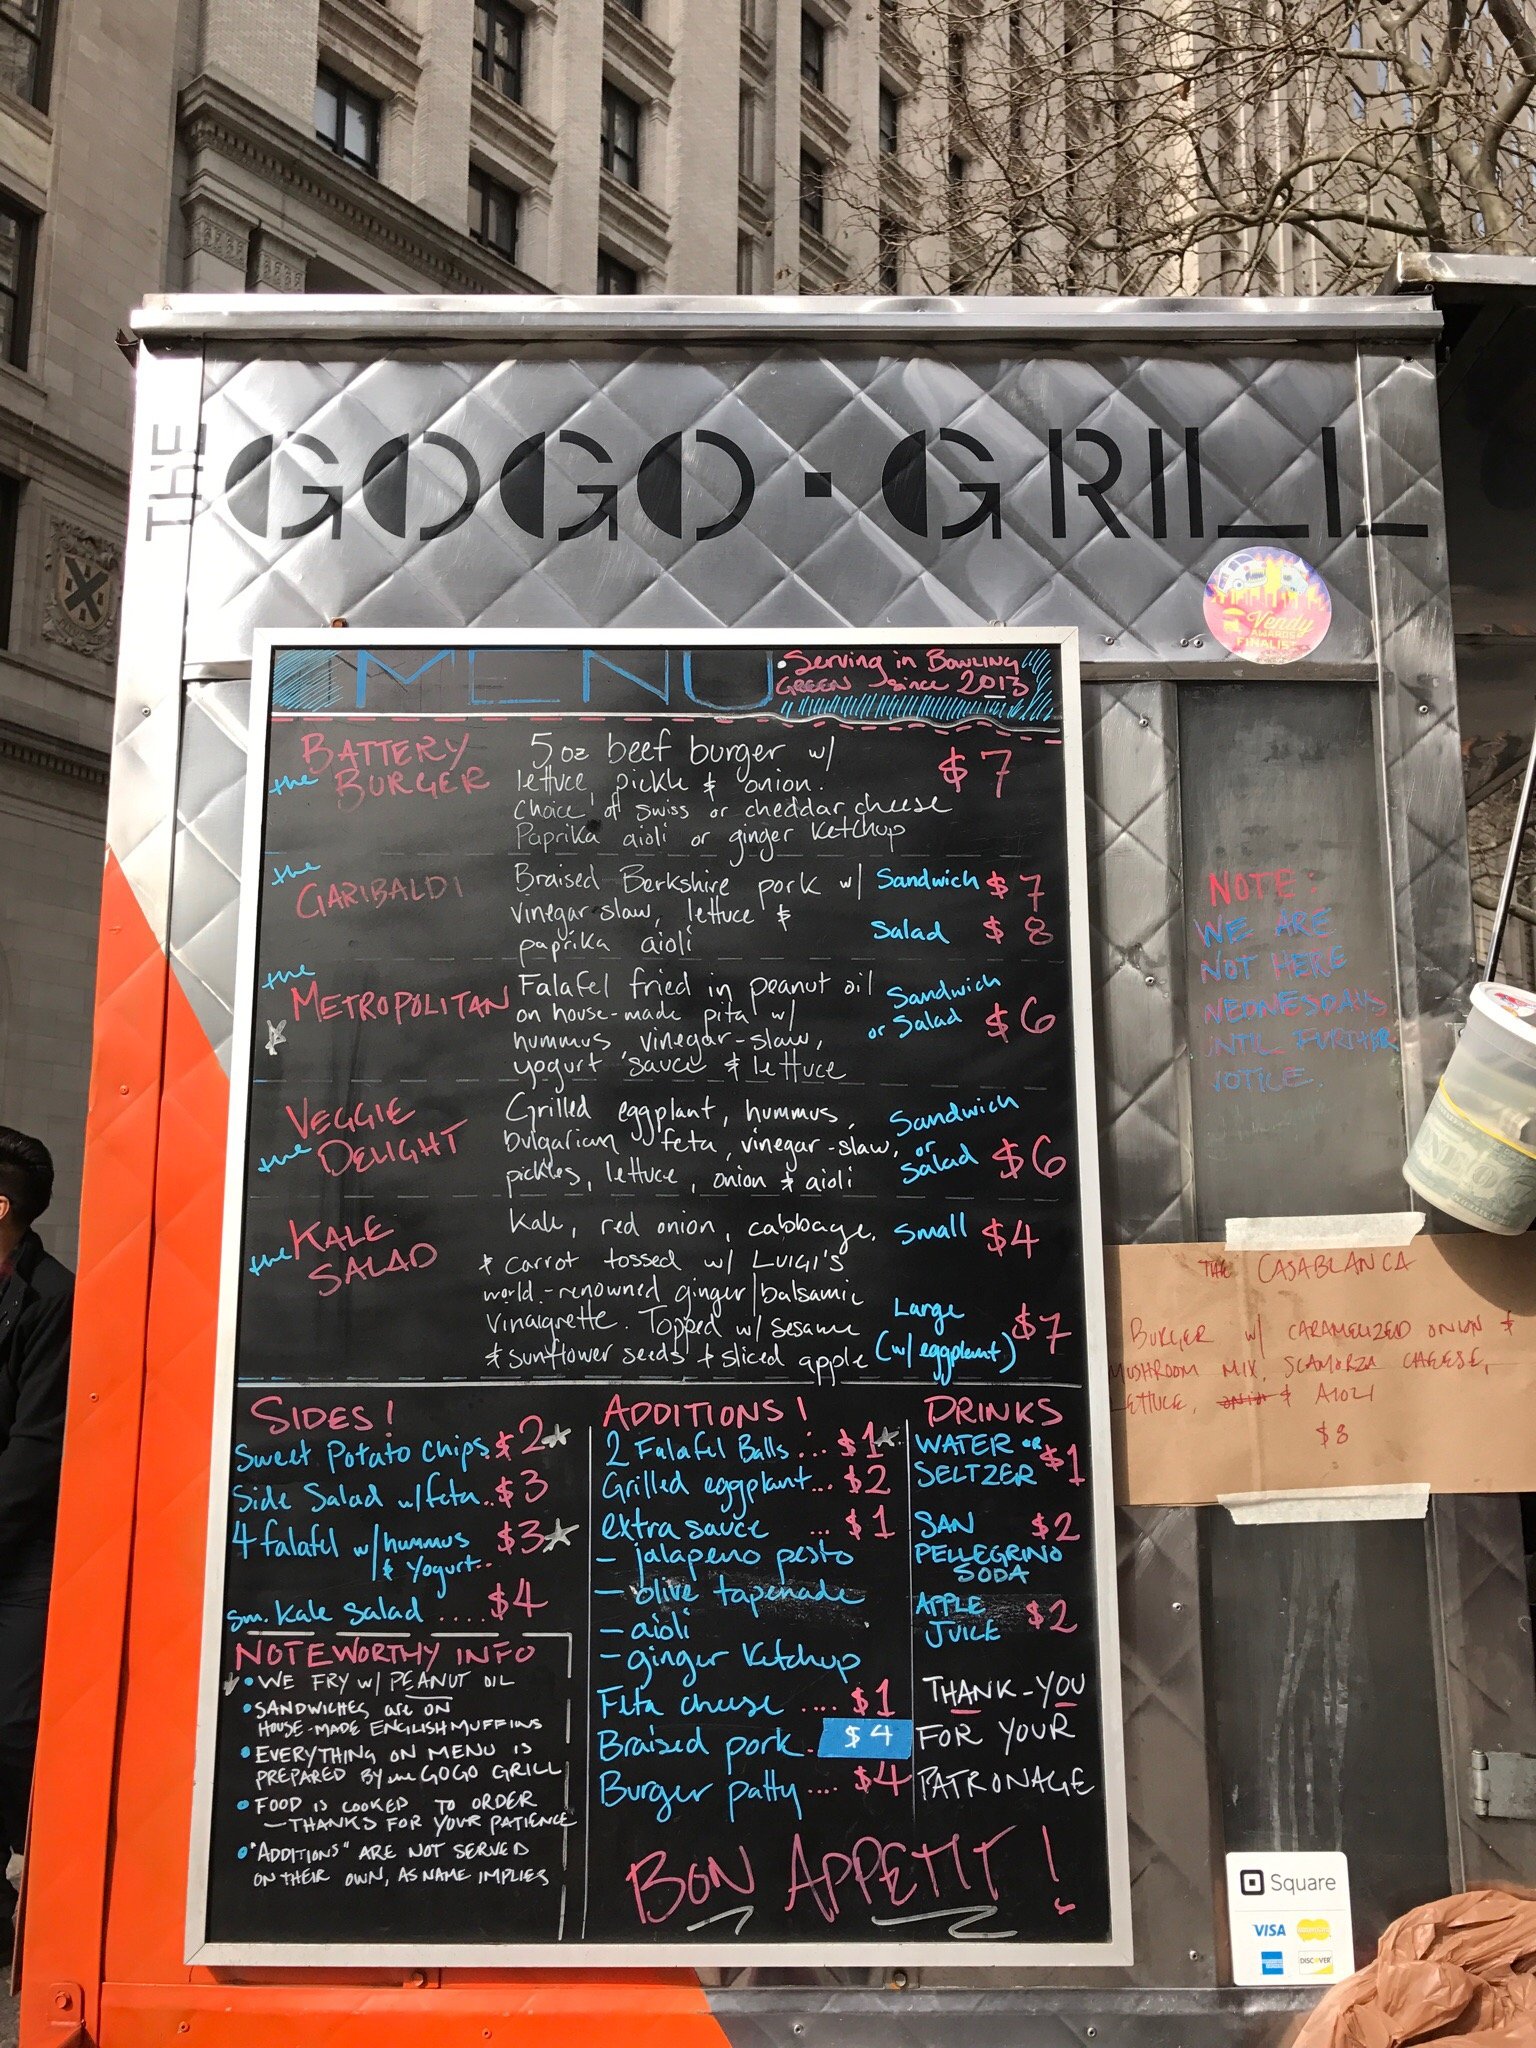 THE GOGO · GRILL
Vendy
AWARDS
FINALIST
MENU
• Serving in BOWLING
GREEN since 2013
the BATTERY
BURGER
5 oz beef burger w/
lettuce, pickle & onion.
Choice of swiss or cheddar cheese
Paprika aioli or ginger ketchup
$7
the
GARIBALDI
Braised Berkshire pork w/
vinegar-slaw, lettuce &
paprika aioli
Sandwich $7
Salad $8
the
METROPOLITAN
Falafel fried in peanut oil
on house-made pita w/
hummus, vinegar-slaw,
yogurt sauce & lettuce
Sandwich
or Salad $6
the VEGGIE
DELIGHT
Grilled eggplant, hummus,
bulgarian feta, vinegar-slaw,
pickles, lettuce, onion & aioli
Sandwich
or
Salad $6
the KALE
SALAD
Kale, red onion, cabbage,
& carrot tossed w/ LUIGI'S
world-renowned ginger/balsamic
vinaigrette. Topped w/ sesame
& sunflower seeds & sliced apple
Small $4
Large
(w/ eggplant) $7
SIDES!
Sweet Potato chips. $2
Side Salad w/feta.. $3
4 falafel w/hummus $3
& Yogurt..
sm. Kale Salad .... $4
NOTEWORTHY INFO
• WE FRY w/ PEANUT OIL
• SANDWICHES are ON
HOUSE-MADE ENGLISH MUFFINS
• EVERYTHING ON MENU IS
PREPARED BY the GOGO GRILL
• FOOD IS COOKED TO ORDER
— THANKS FOR YOUR PATIENCE
• "ADDITIONS" ARE NOT SERVED
ON THEIR OWN, AS NAME IMPLIES
ADDITIONS!
2 Falafel Balls ... $1
Grilled eggplant... $2
extra sauce ... $1
- jalapeno pesto
- olive tapenade
- aioli
- ginger ketchup
Feta cheese .... $1
Braised pork. $4
Burger patty .... $4
DRINKS
WATER OR $1
SELTZER
SAN $2
PELLEGRINO
SODA
APPLE $2
JUICE
THANK-YOU
FOR YOUR
PATRONAGE
BON APPETIT!
NOTE:
WE ARE
NOT HERE
WEDNESDAYS
UNTIL FURTHER
NOTICE.
THE CASABLANCA
BURGER w/ CARAMELIZED ONION &
MUSHROOM MIX, SCAMORZA CHEESE,
LETTUCE, ONION & AIOLI
$8
Square
VISA
DISCOVER